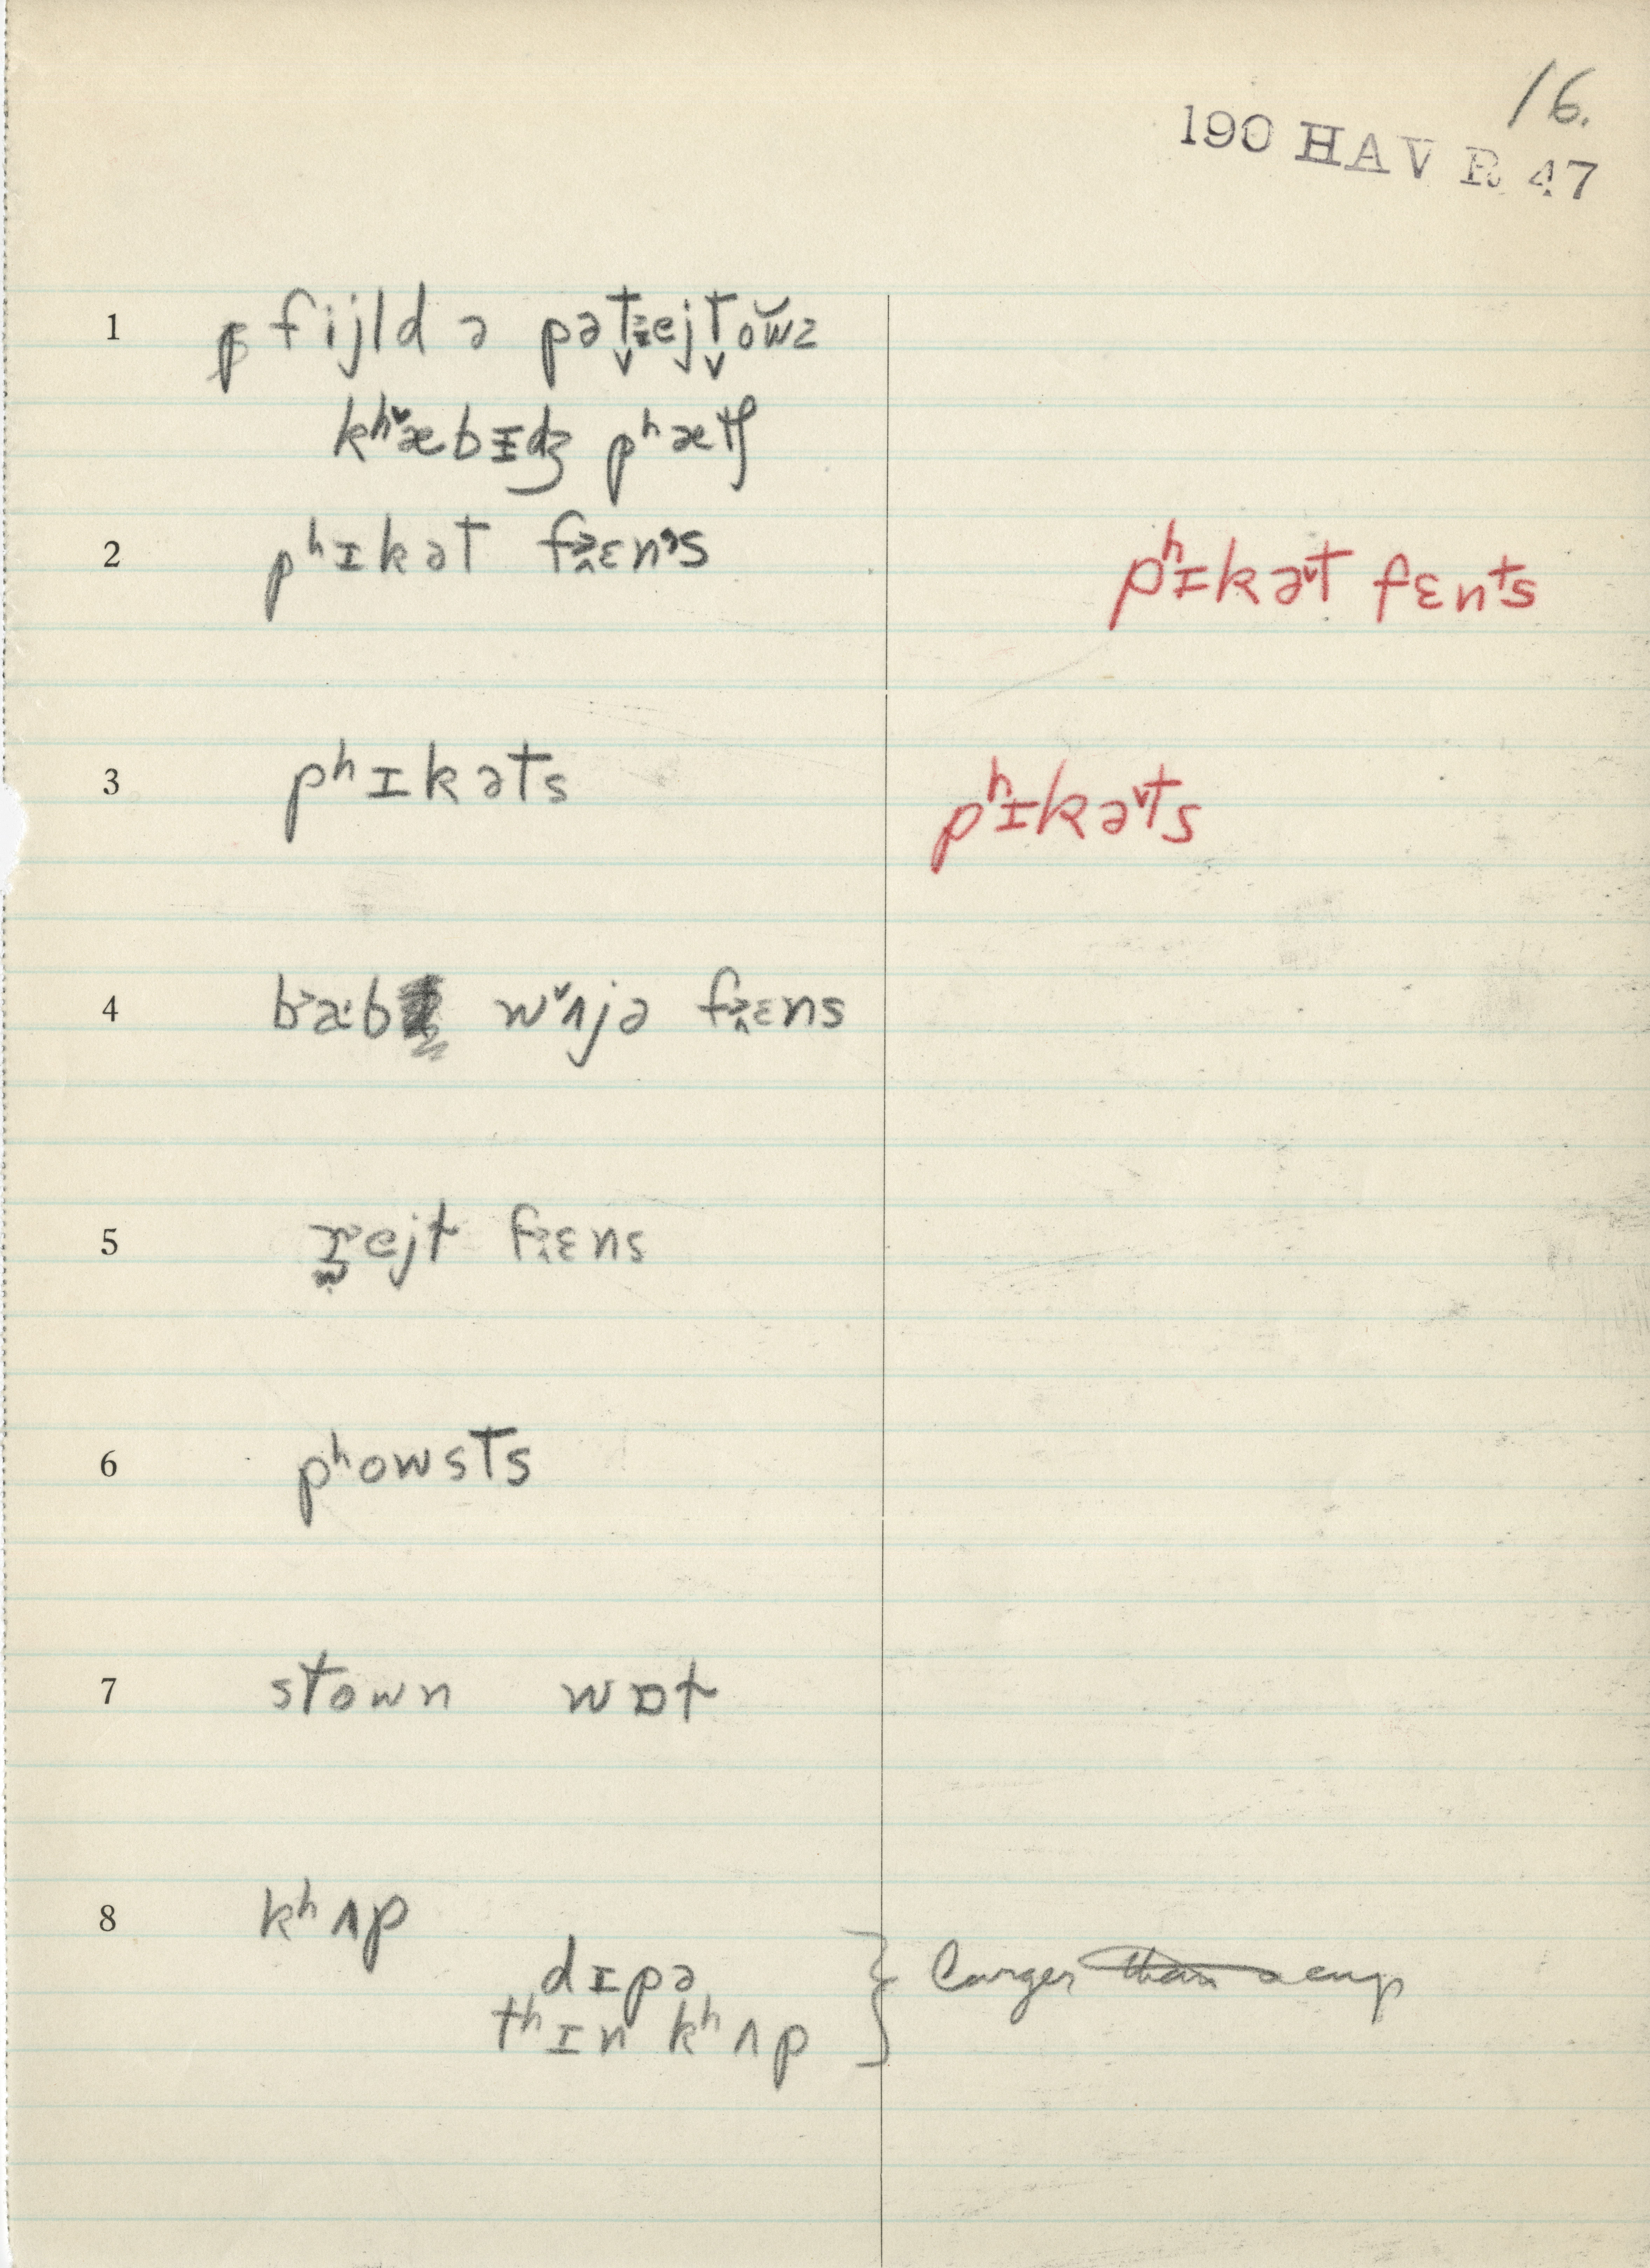 16.
190 HAV R 47
1 fijld ə pət̬ejt̬ow̆z
kʰæbɪʤ pʰætʃ
2 pʰɪkət fɛns pʰɪkət fɛnts
3 pʰɪkəts pʰɪkəts
4 wʌjə fɛns
5 ejt fɛns
6 pʰowsts
7 stown wɒt
8 kʰʌp
dɪpə
tʰɪn kʰʌp } larger than a cup